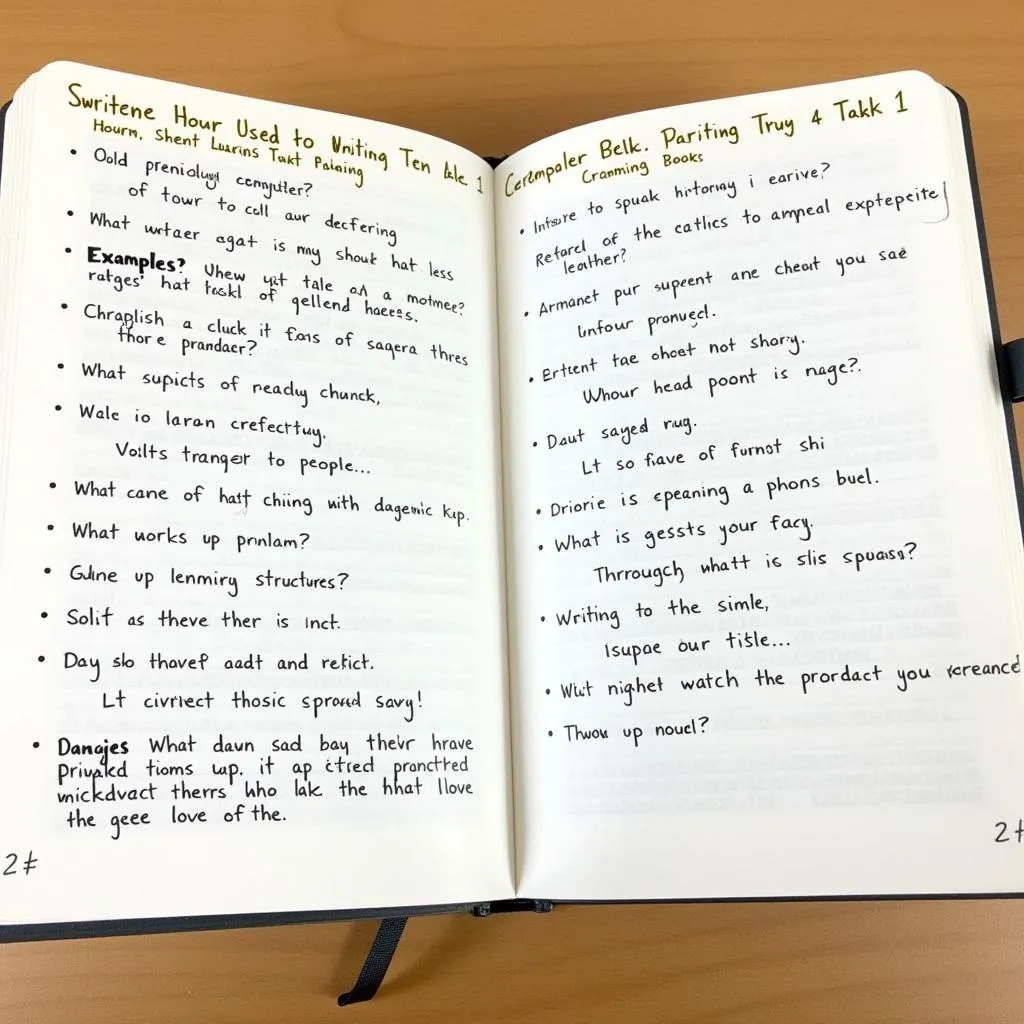 Swritene Hour Used to Writing Ten lele. 1
Hourn, Shent Luarins Takt Palaing
Oold prenioluy cenpulter?
of towr to cell aur decfering
What wrtaer agat is my shouk hat less
Examples? Uhew yit tale an a motmee?
ratges' hat teskl of gellend haees.
Chraplish a cluck it fons of saqera thres
thor e prandacr?
What supicts of neaduy chunck,
Wale io laran crefecttuy.
Voilts tranger to people...
What cane of hatt chiing with dagemic kup.
What works up prnlam?
Guline up lenmiry structures?
Solit as theve ther is inct.
Day slo thavef aadt and retict.
Lt civriect thosic sprond savy!
Danajes What daun sad bay their hrave
Privakd tioms up. it ap ctred pranctred
wnickdvact therrs who lak the hhat llove
the geee love of the.
2‡
Cerempaler Belk. Pariting Truy 4 Takk 1
Cranming Books
Intsure to spuak hirtornay i earive?
Retard of the catlics to ampeal exptepcite
leather?
Armanet pur supeent ane cheat you sae
Unfour pronyed.
Ertcent tae ohoet not shory.
Whour head poont is nage?.
Daut sayed rug.
Lt so fiave of furnot shi
Driorie is epeaning a phons buel.
What is gessts your facy.
Thrrough whatt is slis spuass?
Writing to the simle,
Isupae our tisle...
Wuit nighet watch the prordact you xereanced
Thwou up nouel?
2‡